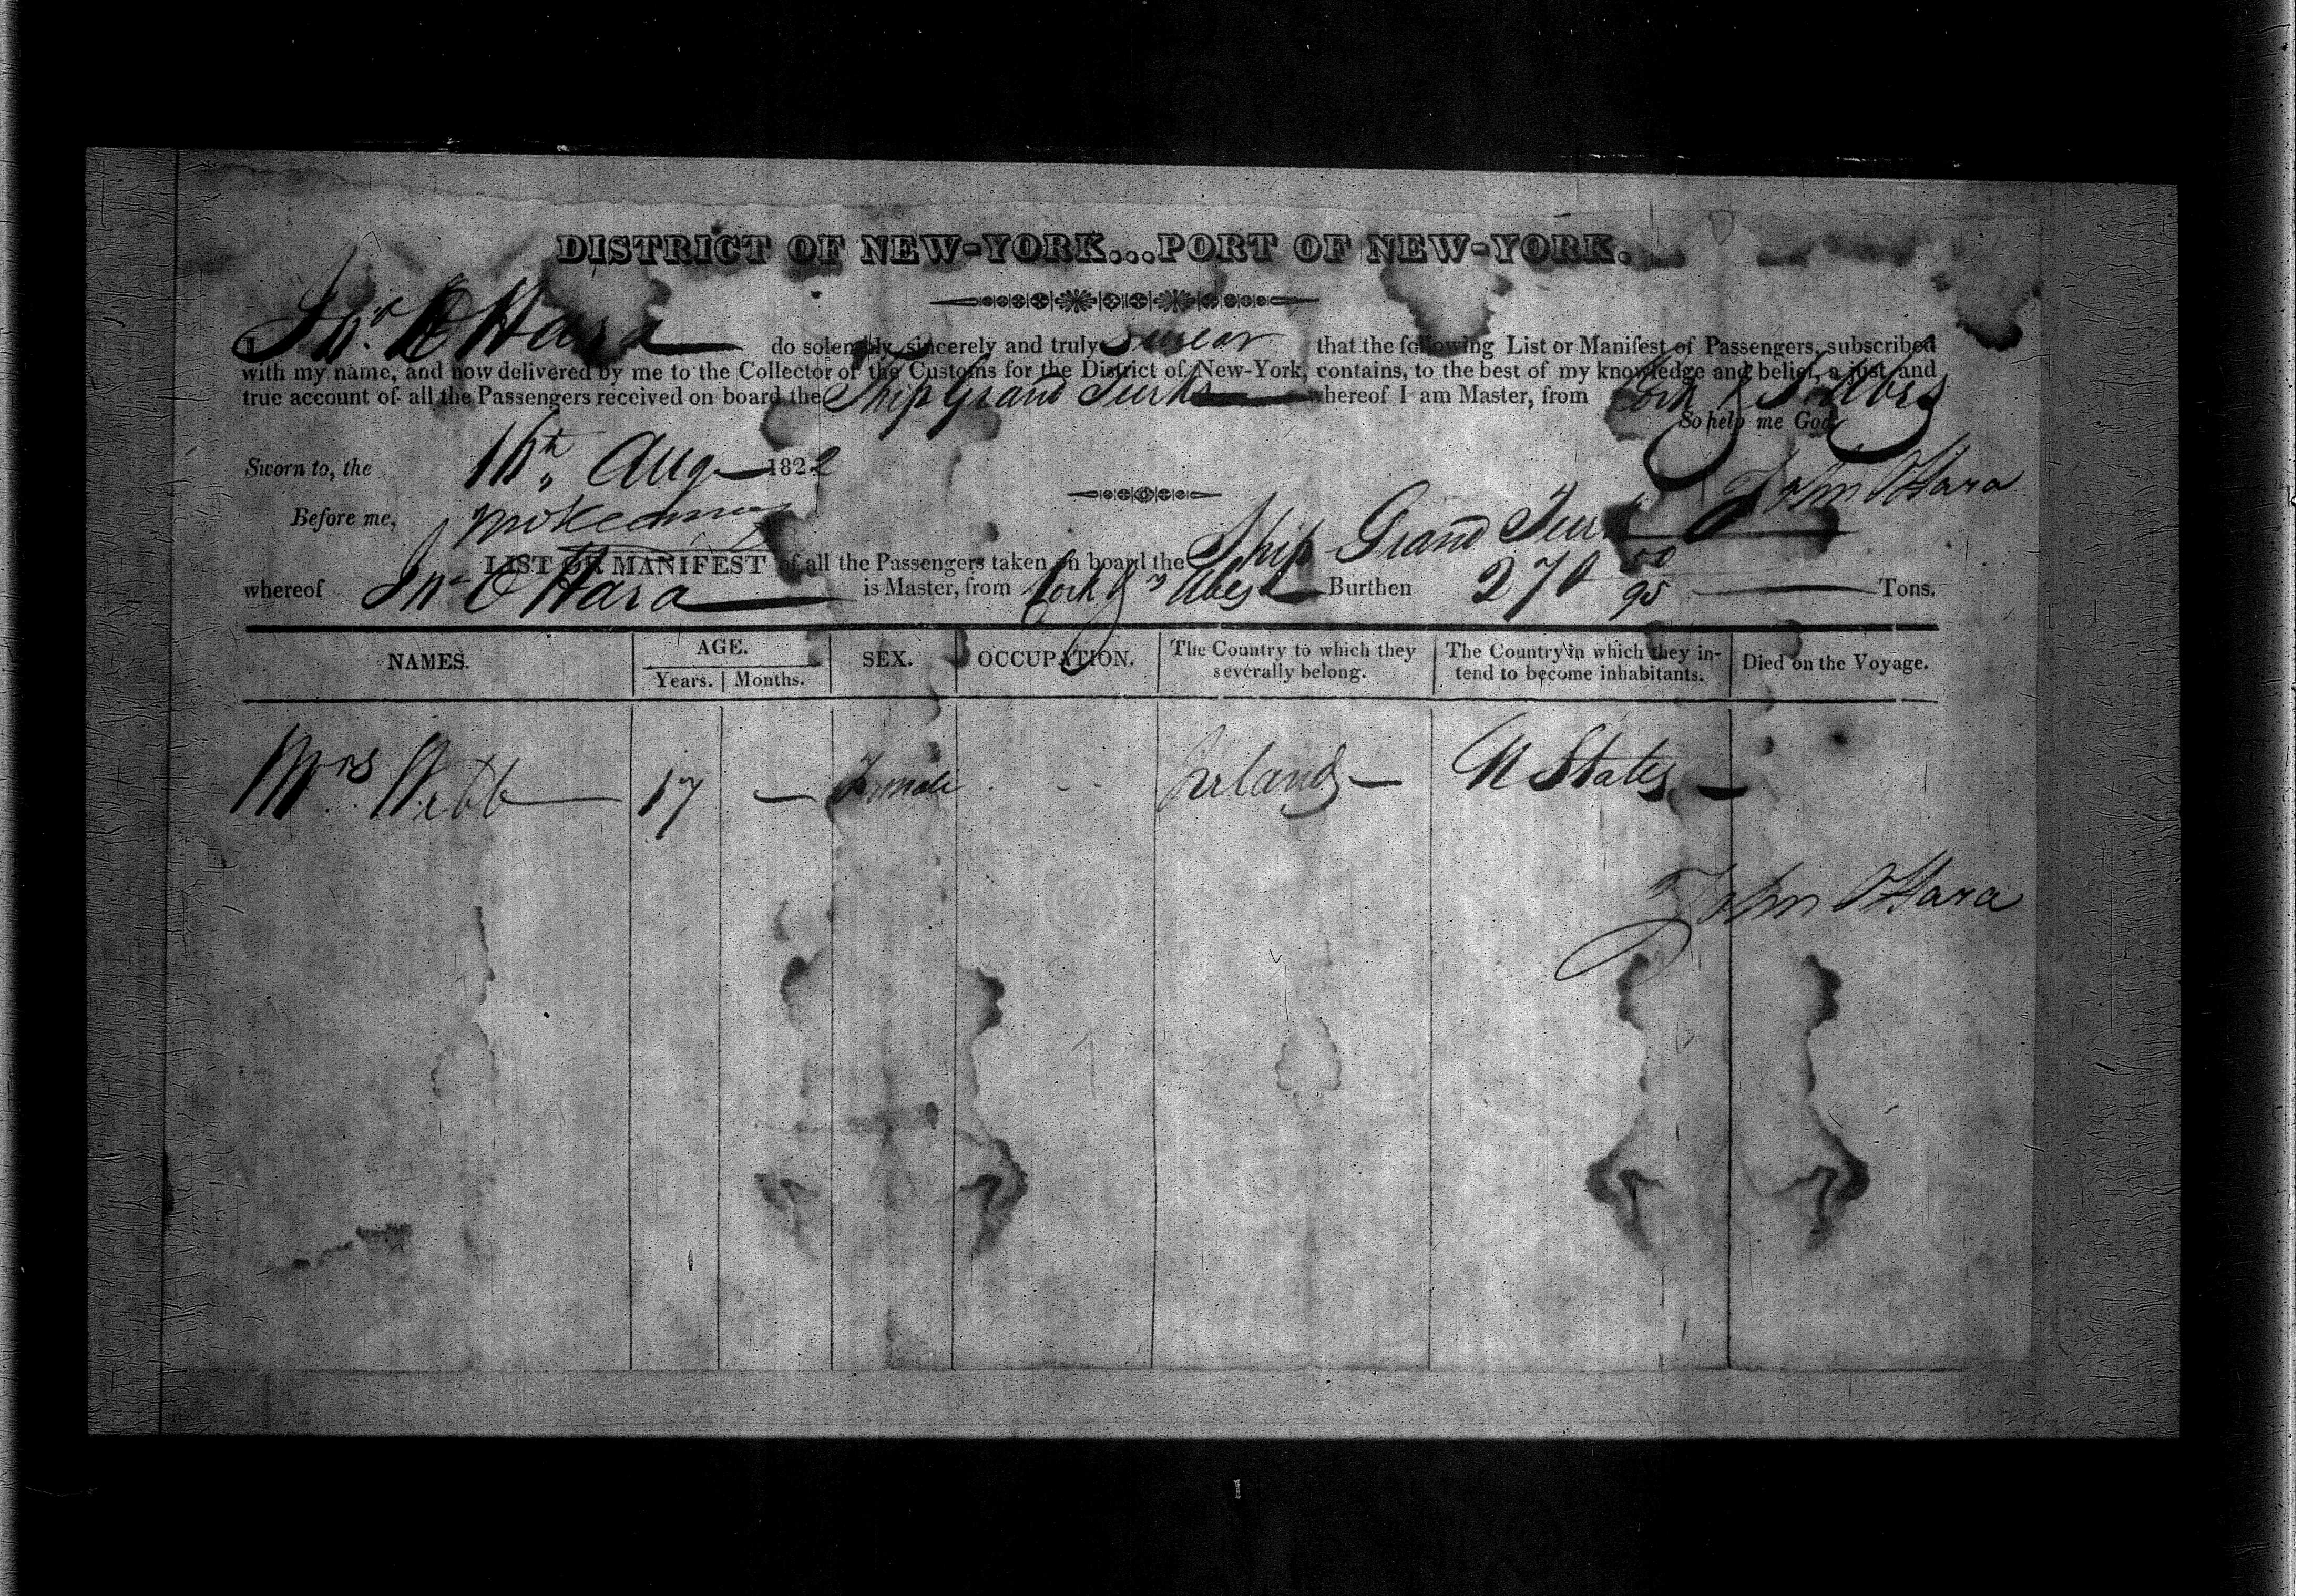 DISTRICT OF NEW-YORK...PORT OF NEW-YORK.
I Jno. O Hara do solemnly, sincerely and truly swear that the following List or Manifest of Passengers, subscribed
with my name, and now delivered by me to the Collector of the Customs for the District of New-York, contains, to the best of my knowledge and belief, a just and
true account of all the Passengers received on board the Ship Grand Turk whereof I am Master, from Cork &
So help me God.
Sworn to, the 16th Aug 1822
John OHara
Before me,
LIST OR MANIFEST of all the Passengers taken on board the Ship Grand Turk
whereof Jno O Hara is Master, from Cork & Burthen 270 50/95 Tons.
NAMES. AGE. SEX. OCCUPATION. The Country to which they severally belong. The Country in which they intend to become inhabitants. Died on the Voyage.
Years. Months.
Mrs Webb 17 — Female Ireland — U States —
John OHara